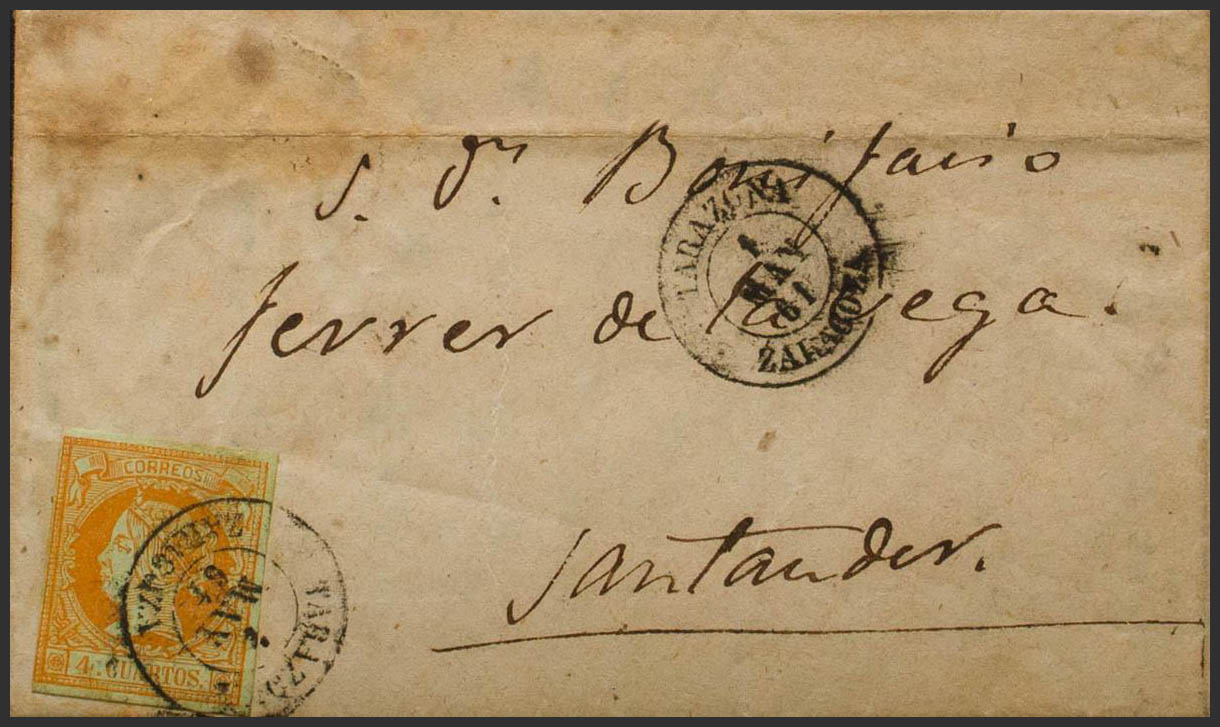 S. Dn. Bonifacio
Ferrer de la Vega.
Santander.
TARAZONA
1
MAY
61
ZARAGOZA
CORREOS
4 CUARTOS.
TARAZONA
MAY
ZARAGOZA